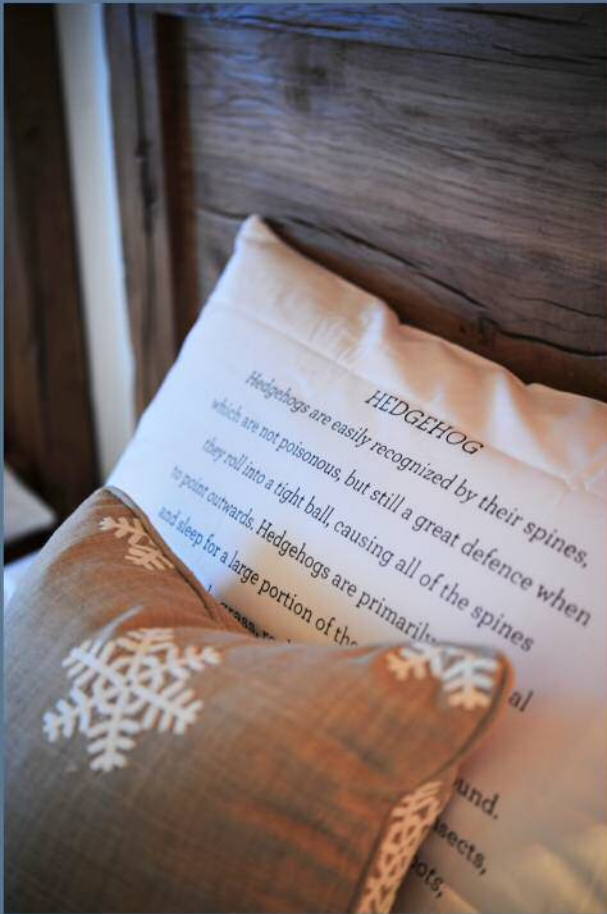 HEDGEHOG
Hedgehogs are easily recognized by their spines,
which are not poisonous, but still a great defence when
they roll into a tight ball, causing all of the spines
to point outwards. Hedgehogs are primarily
and sleep for a large portion of the al
grass,